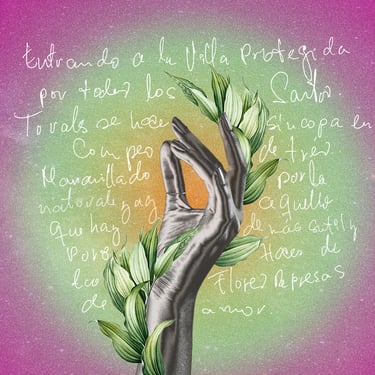 Entrando a la Villa Protegida
por todos los Santos.
se hace sincopa en
Compas de tres.
Maravillado por la
naturaleza y aquello
que hay de más sutil y
Haces de
Eco Flores Represas
de amor